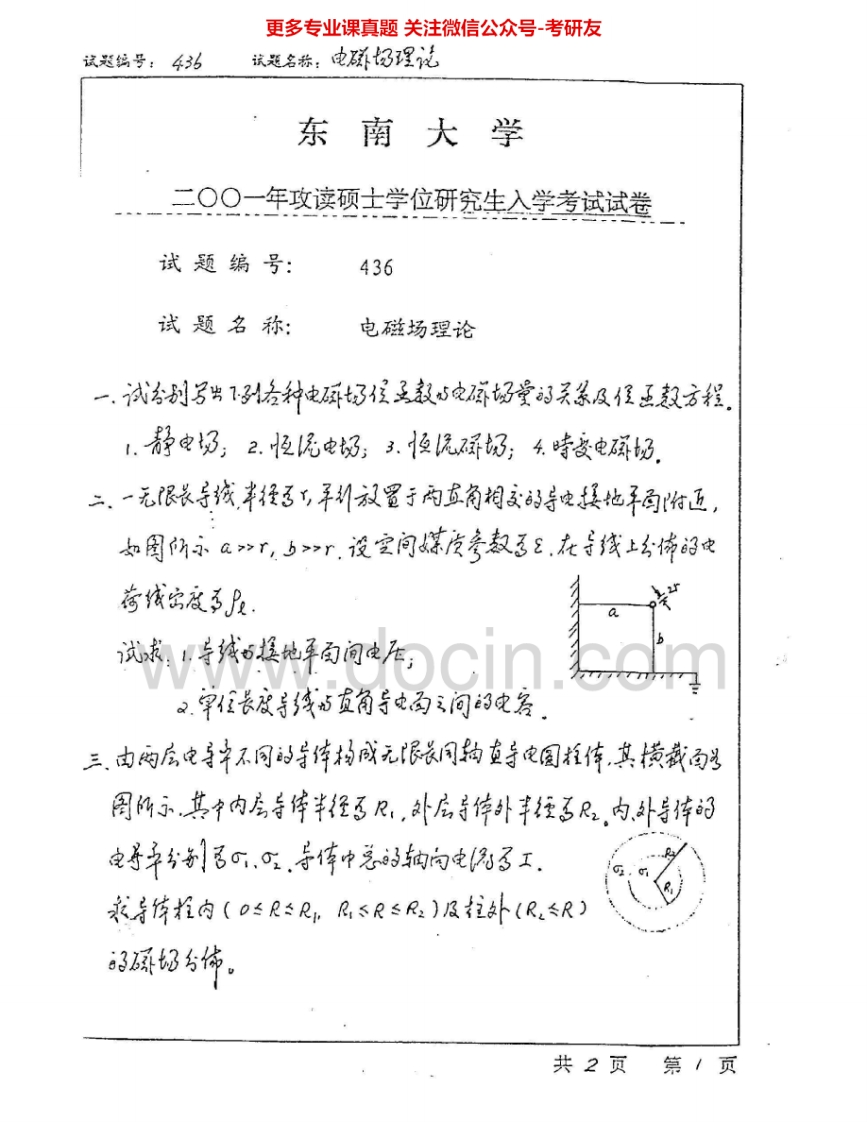 更多专业课真题 关注微信公众号-考研友
试题编号: 436 试题名称: 电磁场理论
东 南 大 学
二〇〇一年攻读硕士学位研究生入学考试试卷
试 题 编 号: 436
试 题 名 称: 电磁场理论
一. 试分别写出下列各种电磁场位函数与电磁场量的关系及位函数方程.
1. 静电场; 2. 恒流电场; 3. 恒流磁场; 4. 时变电磁场.
二. 一无限长导线,半径为r,平行放置于两直角相交的导电接地平面附近,
如图所示 a>>r, b>>r. 设空间媒质参数为ε. 在导线上分布的电
荷线密度为ρℓ.
a
2r
b
试求: 1. 导线与接地平面间电压;
2. 单位长度导线与直角导电面之间的电容.
www.docin.com
三. 由两层电导率不同的导体构成无限长同轴直导电圆柱体,其横截面如
图所示.其中内层导体半径为R₁,外层导体外半径为R₂。内、外导体的
电导率分别为σ₁、σ₂. 导体中总的轴向电流为I.
求导体柱内(0≤R≤R₁, R₁≤R≤R₂)及柱外(R₂≤R)
的磁场分佈。
R₂
σ₂ σ₁
R₁
共 2 页 第 1 页